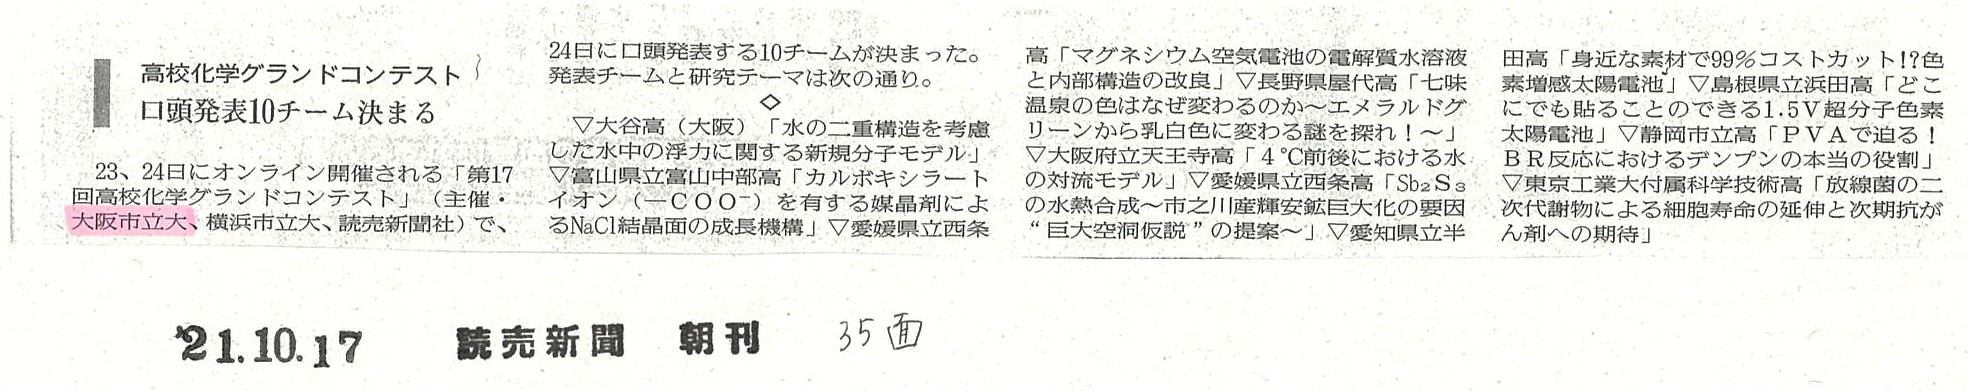 高校化学グランドコンテスト
口頭発表10チーム決まる
23、24日にオンライン開催される「第17
回高校化学グランドコンテスト」(主催・
大阪市立大、横浜市立大、読売新聞社)で、
24日に口頭発表する10チームが決まった。
発表チームと研究テーマは次の通り。
◇
▽大谷高(大阪)「水の二重構造を考慮
した水中の浮力に関する新規分子モデル」
▽富山県立富山中部高「カルボキシラート
イオン(―ＣＯＯ⁻)を有する媒晶剤によ
るNaCl結晶面の成長機構」▽愛媛県立西条
高「マグネシウム空気電池の電解質水溶液
と内部構造の改良」▽長野県屋代高「七味
温泉の色はなぜ変わるのか～エメラルドグ
リーンから乳白色に変わる謎を探れ！～」
▽大阪府立天王寺高「４℃前後における水
の対流モデル」▽愛媛県立西条高「Sb₂S₃
の水熱合成～市之川産輝安鉱巨大化の要因
“巨大空洞仮説”の提案～」▽愛知県立半
田高「身近な素材で99％コストカット!?色
素増感太陽電池」▽島根県立浜田高「どこ
にでも貼ることのできる1.5Ｖ超分子色素
太陽電池」▽静岡市立高「ＰＶＡで迫る！
ＢＲ反応におけるデンプンの本当の役割」
▽東京工業大付属科学技術高「放線菌の二
次代謝物による細胞寿命の延伸と次期抗が
ん剤への期待」
'21.10.17 読売新聞 朝刊 35面